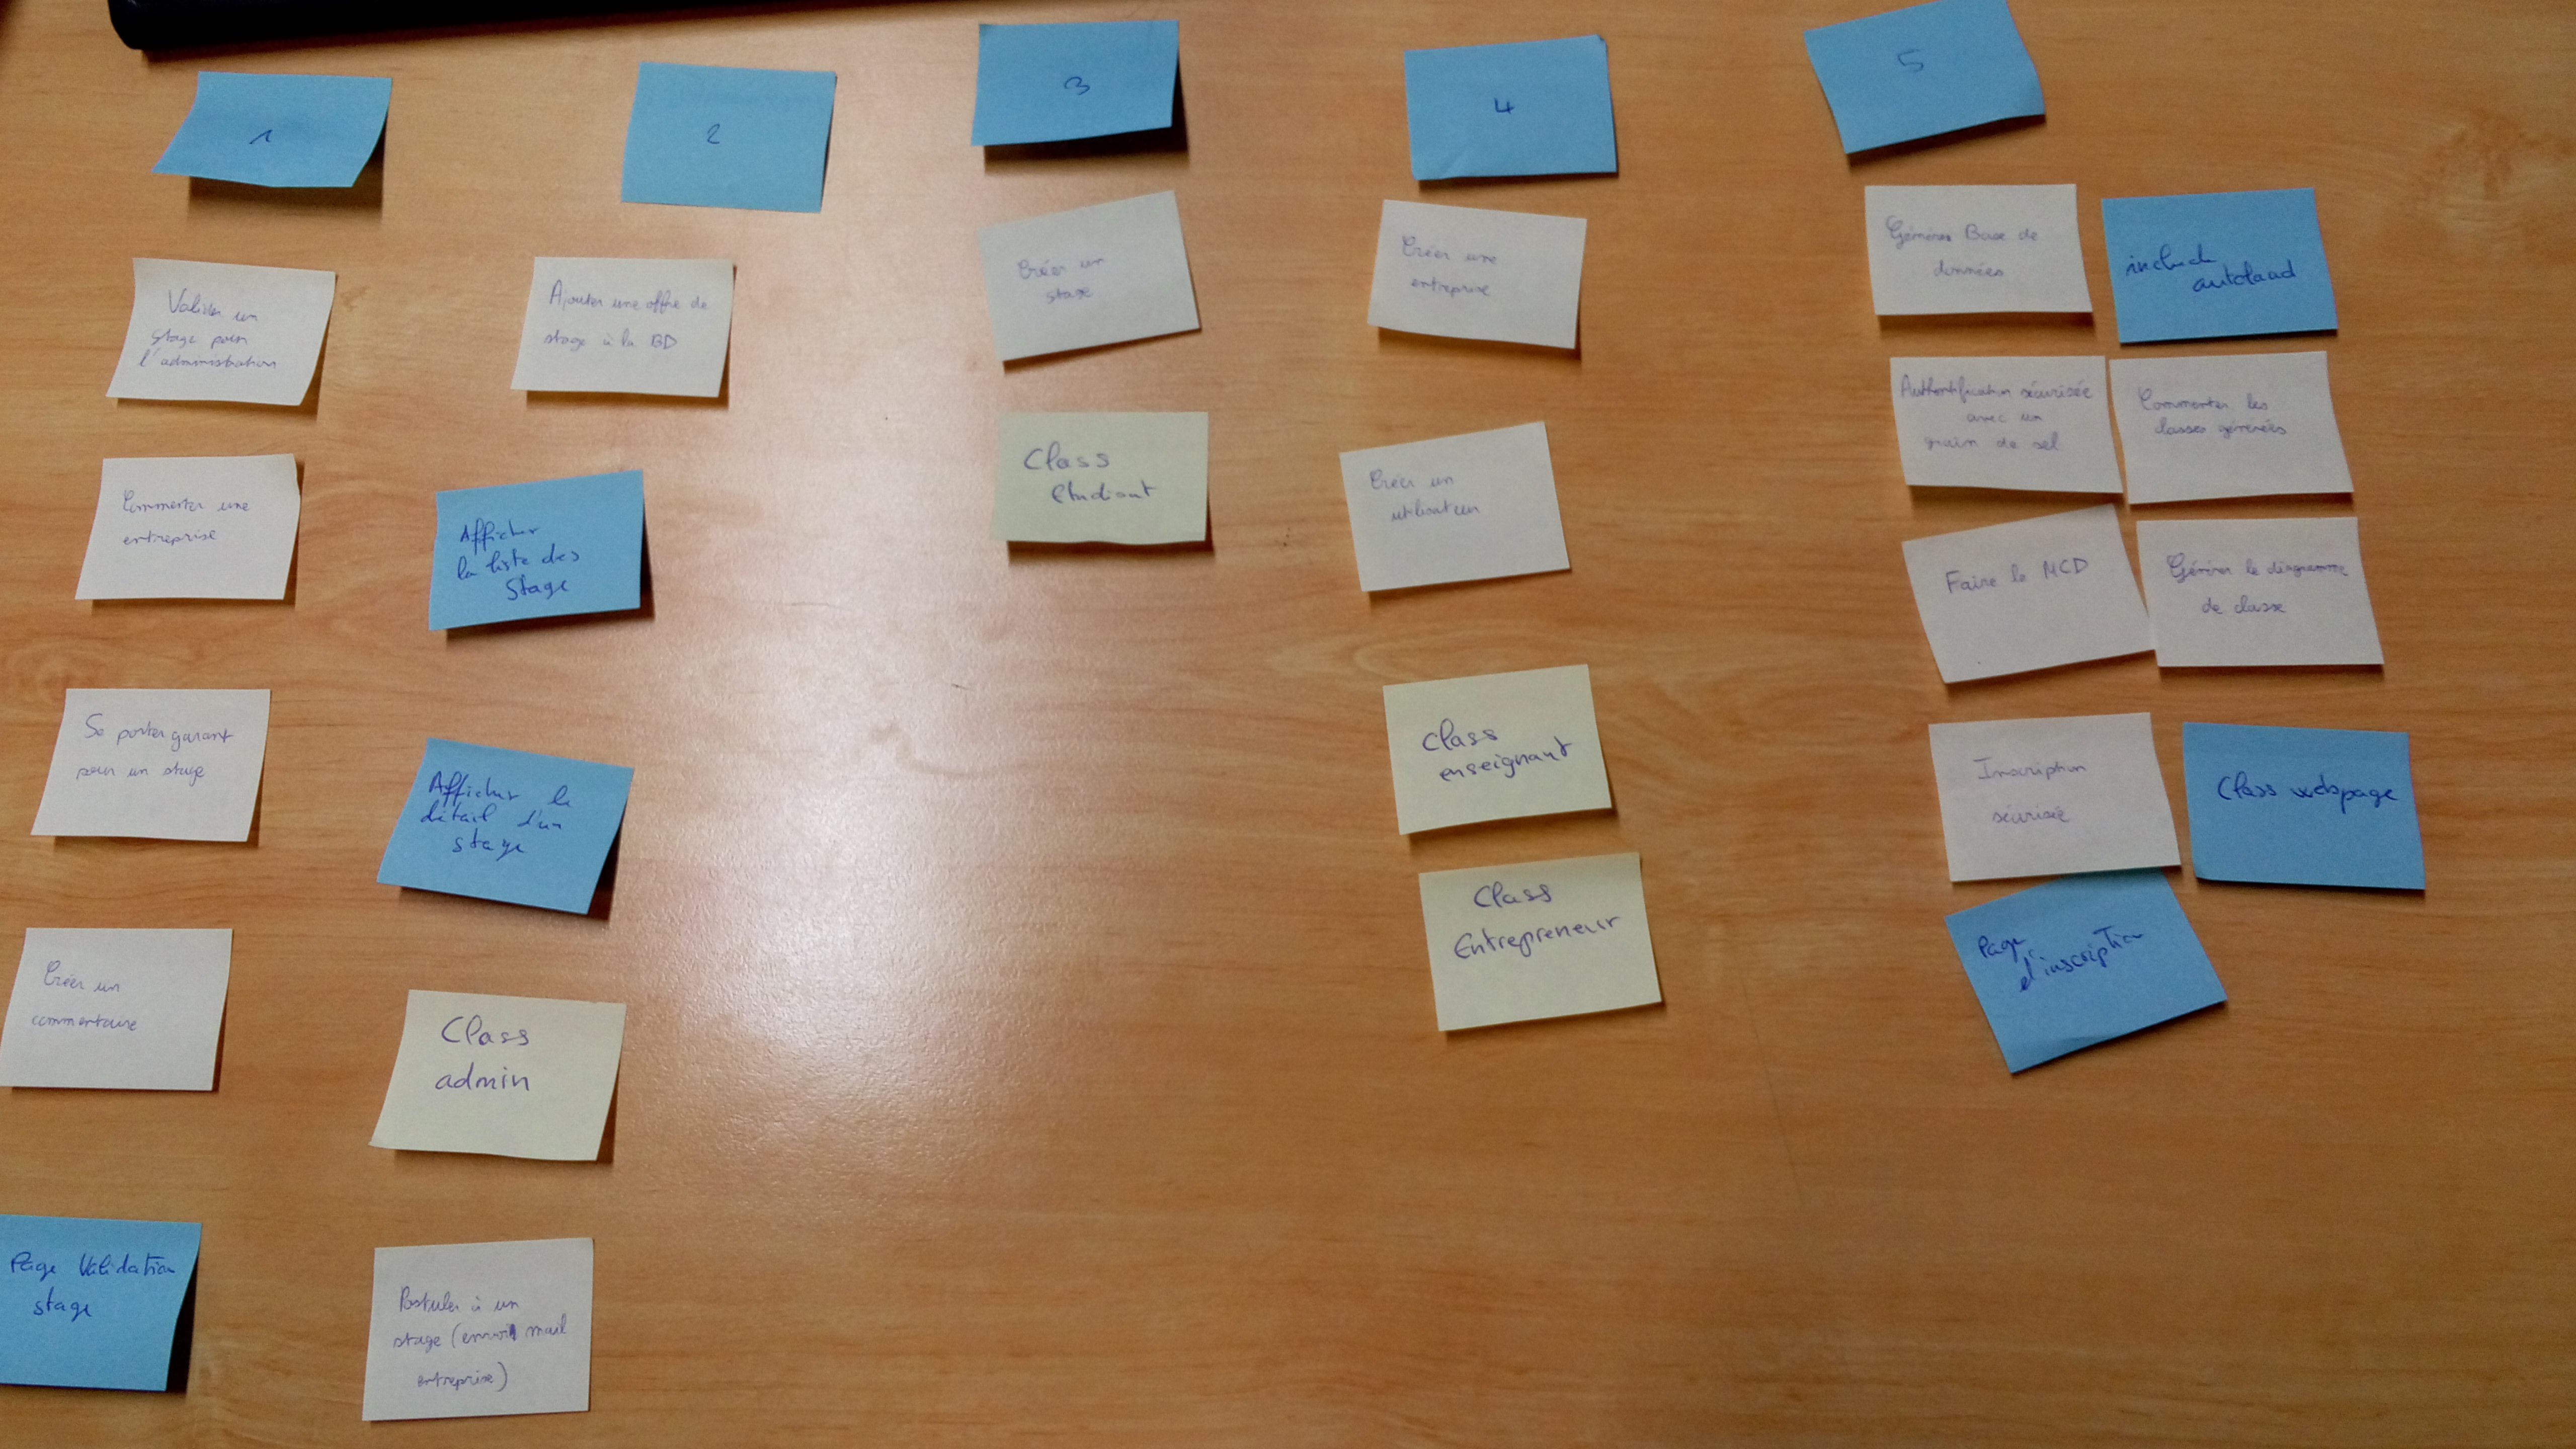 1
2
3
4
5
Valider un
stage pour
l'administration
Commenter une
entreprise
Se porter garant
pour un stage
Créer un
commentaire
Page Validation
stage
Ajouter une offre de
stage à la BD
Afficher
la liste des
Stage
Afficher le
détail d'un
stage
Class
admin
Postuler à un
stage (envoi mail
entreprise)
Créer un
stage
Class
etudiant
Créer une
entreprise
Créer un
utilisateur
Class
enseignant
Class
Entrepreneur
Base de
données
include
autoload
Authentification sécurisée
avec un
grain de sel
Commenter les
classes générées
Faire le MCD
Générer le diagramme
de classe
Inscription
sécurisée
Class webpage
Page
d'inscription